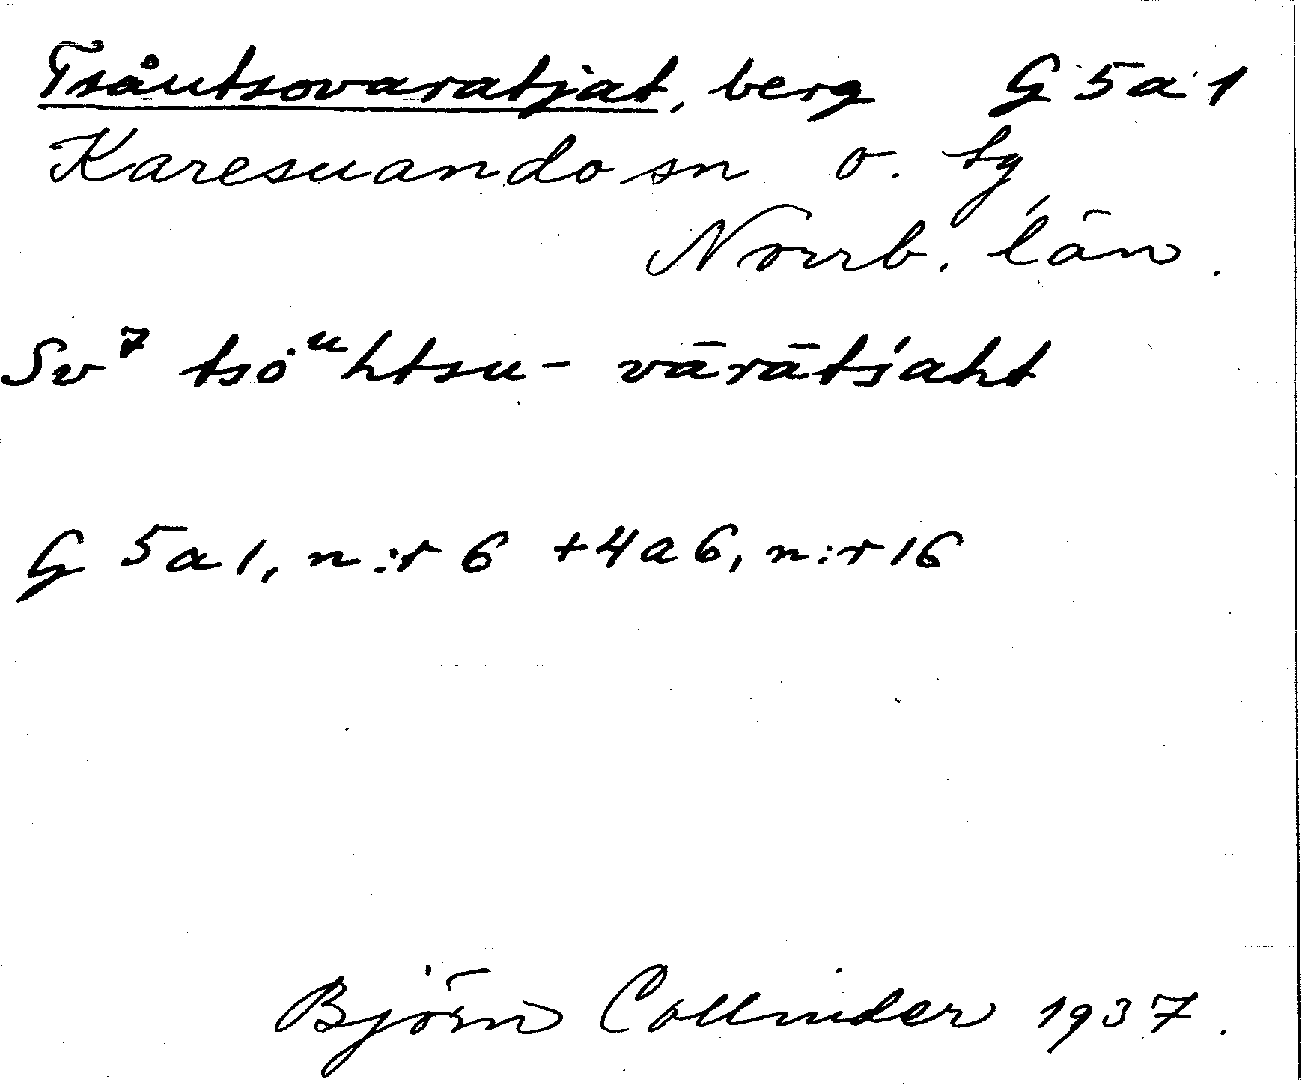 Tsåutsovaratjat, berg G 5 a 1
Karesuando sn o. tg,
Norrb. län.
Sv⁷ tsȯᵘhtsu- vārātśaht
G 5a1, n:r 6 +4a6, n:r 16
Björn Collinder 1937.